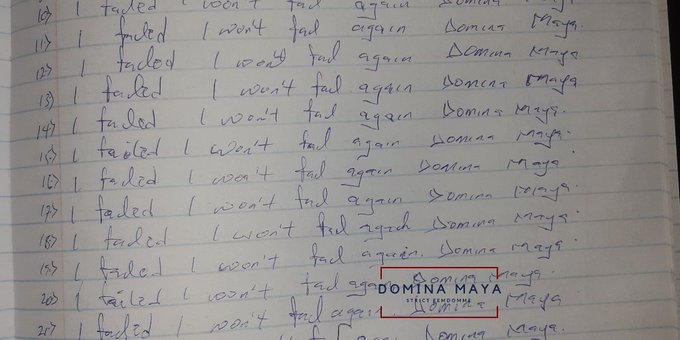 10) I failed I won't fail again Domina Maya.
11) I failed I won't fail again Domina Maya.
12) I failed I won't fail again Domina Maya
13) I failed I won't fail again Domina Maya
14) I failed I won't fail again Domina Maya.
15) I failed I won't fail again Domina Maya.
16) I failed I won't fail again Domina Maya.
17) I failed I won't fail again Domina Maya.
18) I failed I won't fail again Domina Maya.
19) I failed I won't fail again. Domina Maya.
20) I failed I won't fail again Domina Maya.
21) I failed I won't fail again. Domina Maya.
DOMINA MAYA
STRICT FEMDOMME